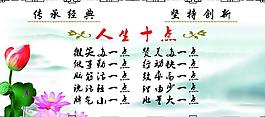 传承经典 坚持创新
人生十点
微笑多一点 赞美多一点
做事勤一点 行动快一点
脑筋活一点 效率高一点
说话轻一点 理由少一点
脾气小一点 肚量大一点